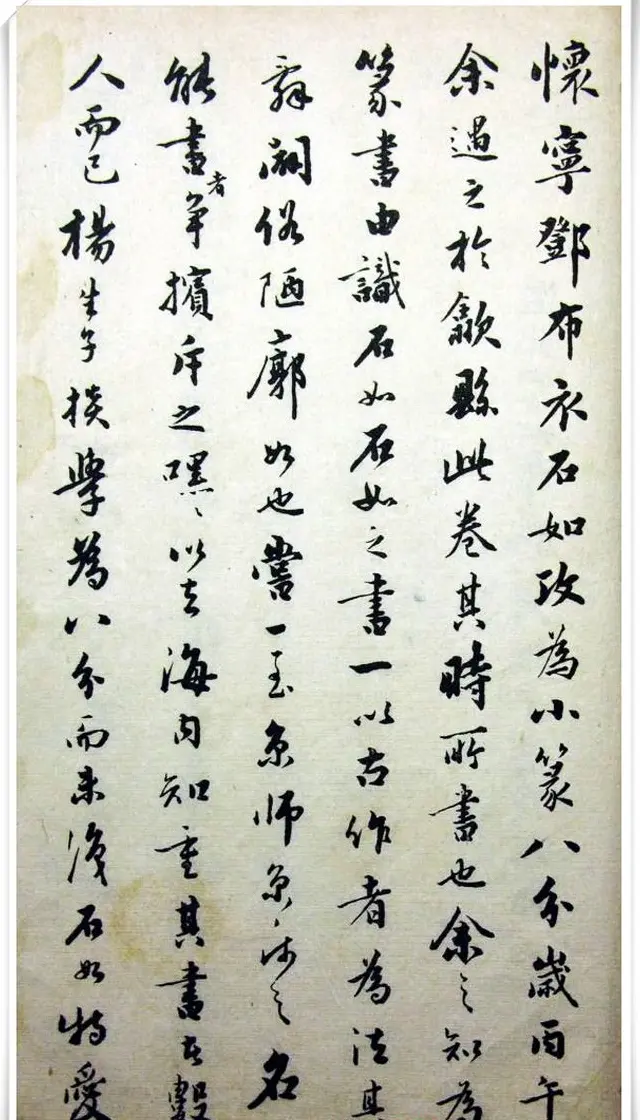 懷寧鄧布衣石如攻為小篆八分歲丙午
余遇之於歙縣此卷其時所書也余之知為
篆書由識石如石如之書一以古作者為法其
辭闢俗陋廓如也嘗一至京師京師之名
能書者爭擯斥之嘿〻以去海內知重其書數
人而已楊生子掞學為八分而未石如特愛